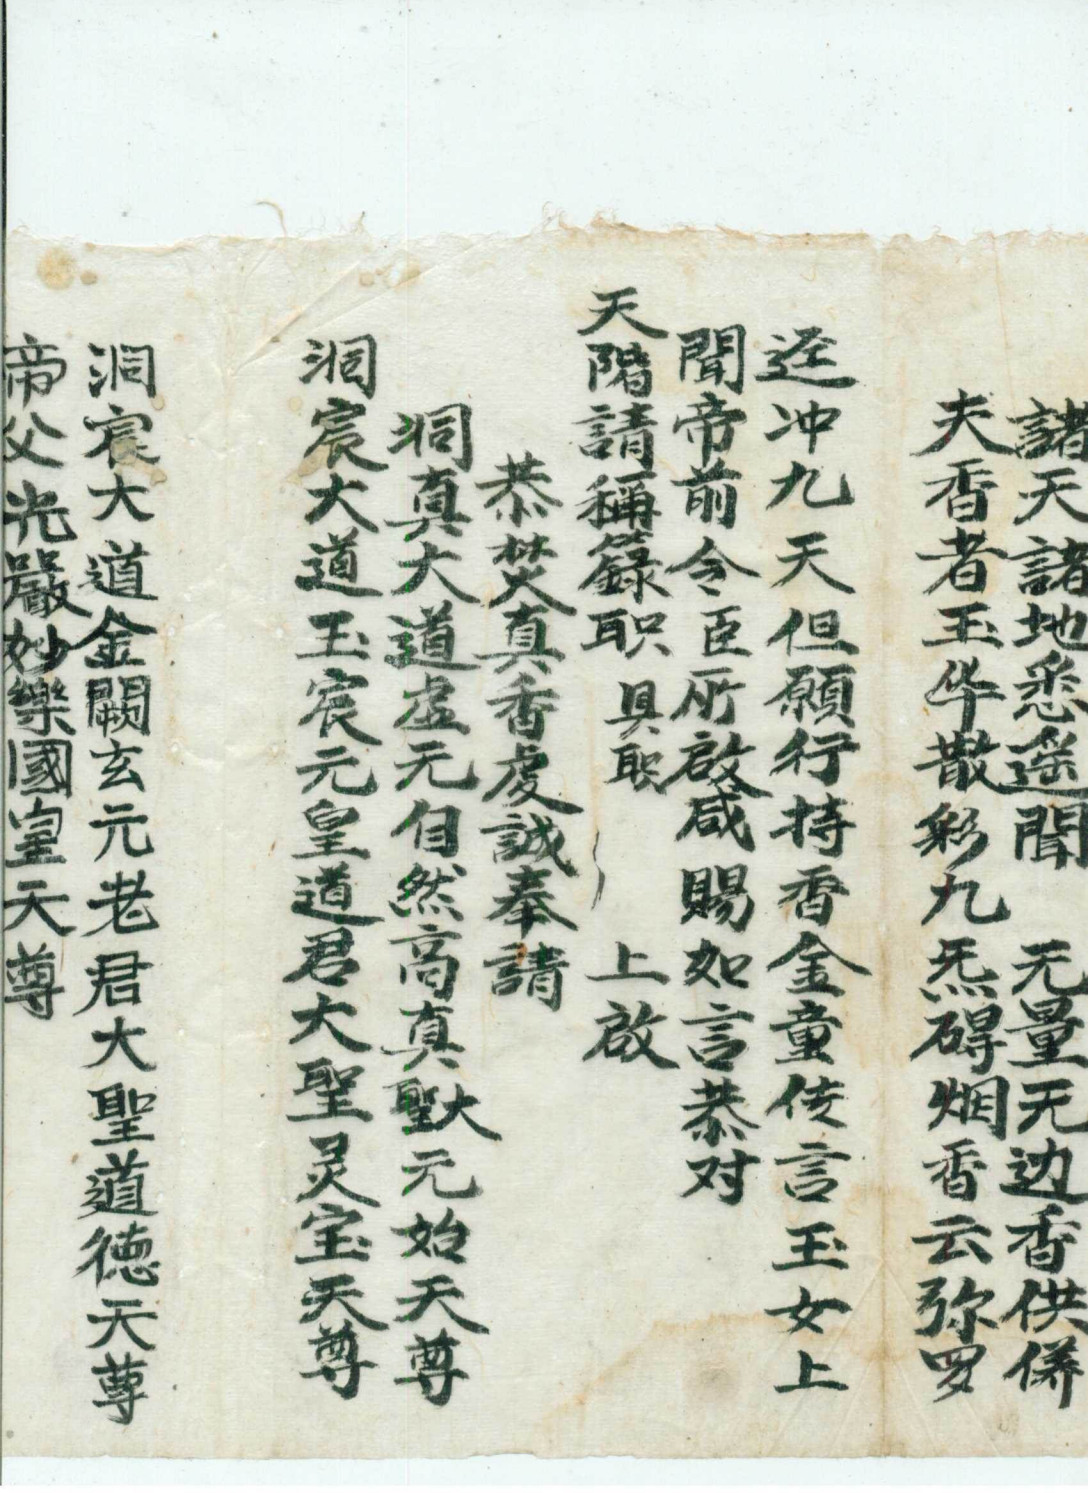 諸天諸地悉遥聞　无量无边香供养
夫香者玉华散彩九炁碍烟香云弥罗
迳冲九天但願行持香金童传言玉女上
聞帝前令臣所啟咸賜如言恭对
天階請稱籙职　具职　上啟
恭焚真香虔誠奉請
洞真大道虚无自然高真大聖元始天尊
洞宸大道玉宸元皇道君大聖灵宝天尊
洞宸大道金闕玄元老君大聖道德天尊
帝父光嚴妙樂國皇天尊